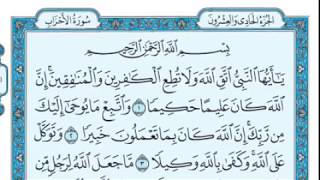 الجزء الحادى والعشرون
سورة الأحزاب
بِسْمِ اللَّهِ الرَّحْمَٰنِ الرَّحِيمِ
يَٰٓأَيُّهَا النَّبِىُّ اتَّقِ اللَّهَ وَلَا تُطِعِ الْكَٰفِرِينَ وَالْمُنَٰفِقِينَ إِنَّ
اللَّهَ كَانَ عَلِيمًا حَكِيمًا ١ وَاتَّبِعْ مَا يُوحَىٰٓ إِلَيْكَ
مِن رَّبِّكَ إِنَّ اللَّهَ كَانَ بِمَا تَعْمَلُونَ خَبِيرًا ٢ وَتَوَكَّلْ
عَلَى اللَّهِ وَكَفَىٰ بِاللَّهِ وَكِيلًا ٣ مَّا جَعَلَ اللَّهُ لِرَجُلٍ مِّن